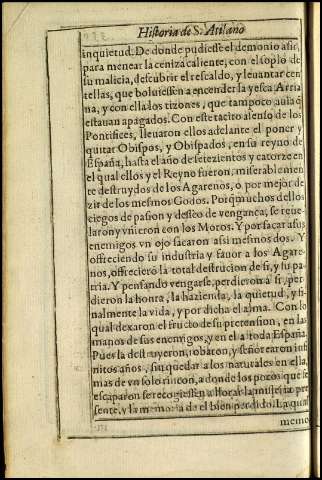 Historia de S. Atilano
inquietud. De donde pudiesse el demonio asir,
para menear la ceniza caliente, con el soplo de
su malicia, descubrir el rescaldo, y leuantar cen
tellas, que boluiessen a encender la yesca Arria
na, y con ella los tizones, que tampoco aula q̃
estauan apagados. Con este tacito assenso de los
Pontifices, lleuaron ellos adelante el poner y
quitar Obispos, y Obispados, en su reyno de
España, hasta el año de setezientos y catorze en
el qual ellos y el Reyno fueron, miserablemen
te destruydos de los Agarenos, o por mejor de
zir de los mesmos Godos. Porq̃ muchos dellos
ciegos de pasion y desseo de vengança, se reue
laron y vnieron con los Moros. Y por sacar a sus
enemigos vn ojo sacaron asi mesmos dos. Y
offreciendo su industria y fauor a los Agare-
nos, offreciero la total destrucion de si, y su pa-
tria. Y pensando vengarse, perdieron a si, per-
dieron la honra, la hazienda, la quietud, y fi-
nalmente la vida, y por dicha el alma. Con lo
qual dexaron el fructo de su pretension, en las
manos de sus enemigos, y en el a toda España.
Pues la destruyeron, robaron, y señorearon infi
nitos años, sin quedar a los naturales en ella,
mas de vn solo rincon, a donde los pocos que se
escaparon se recogiessen a llorar la miseria pre
sente, y la memoria de el bien perdido. La qual
memo